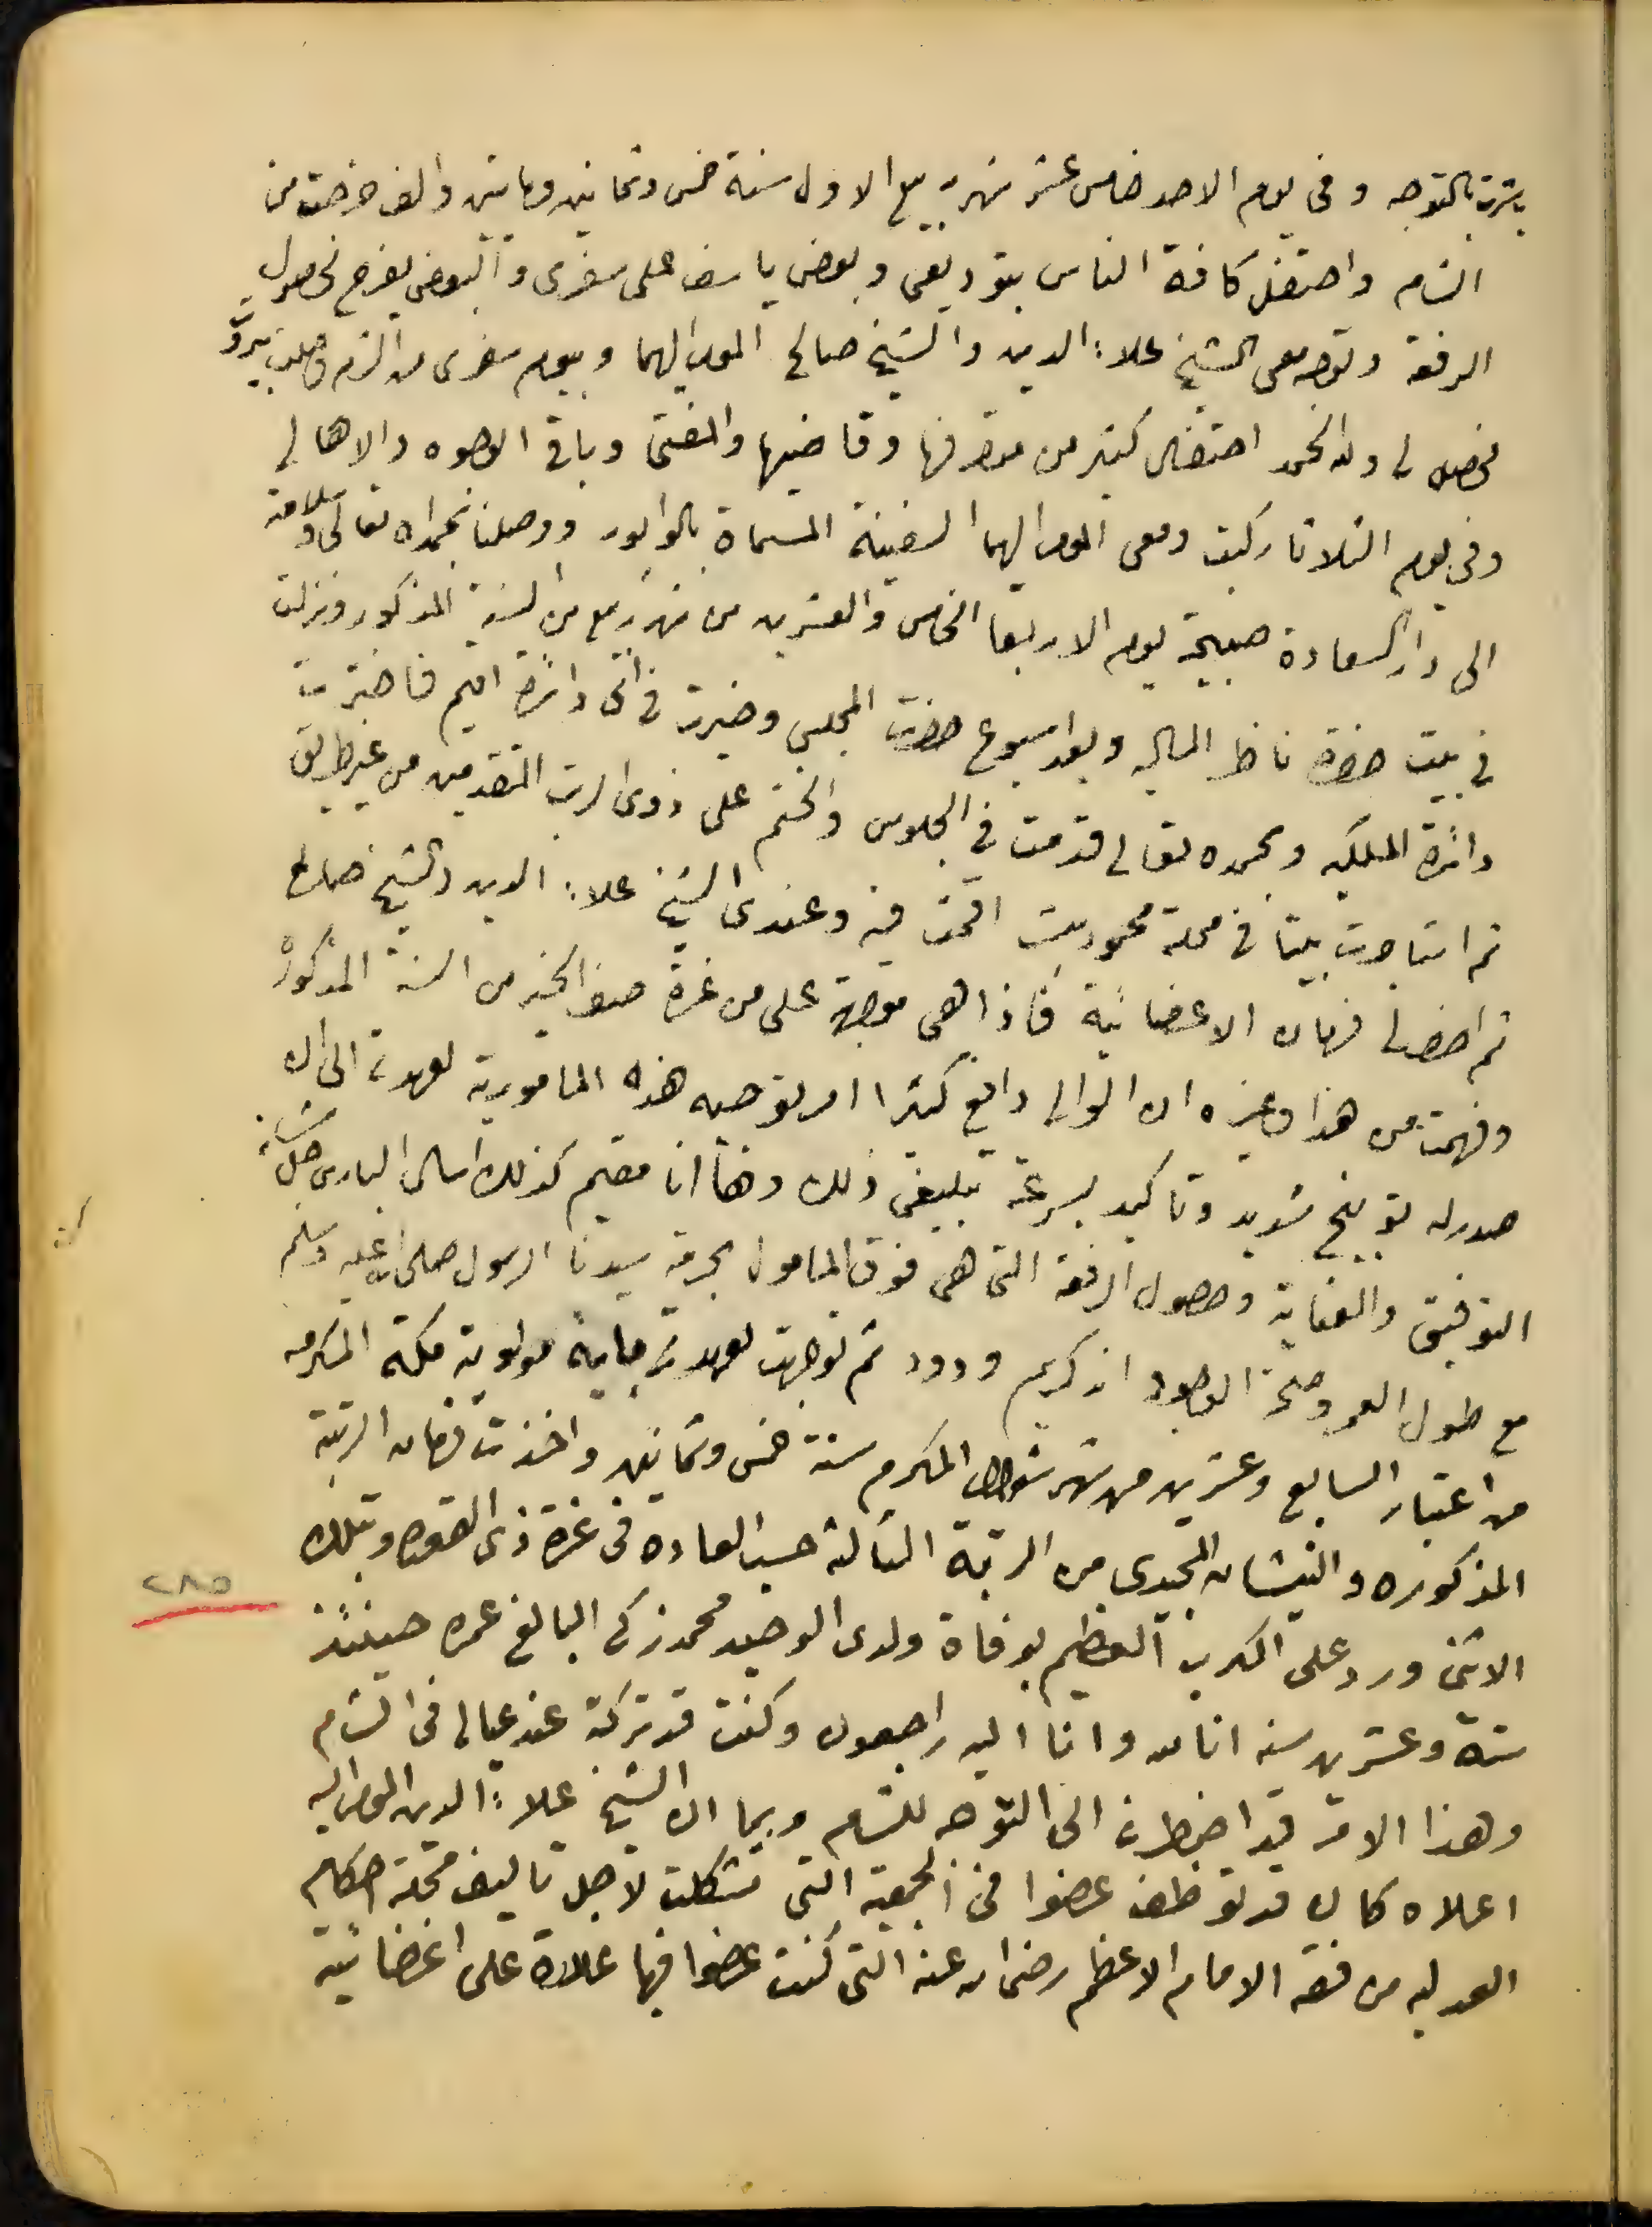 بشرت بالتوجه وفي يوم الاحد خامس عشر شهر ربيع الاول سنة خمس وثمانين ومايتين والف خرجت من
الشام واحتفل كافة الناس بتوديعي وبعض ياسف على سفرى والبعض يفرح لحصول
الرفعة وتوجه معى الشيخ علاء الدين والشيخ صالح المومى اليهما وبيوم سفرى من الشام وصلت بيروت
فحصل لى ولله الحمد احتفال كثير من متصرفها وقاضيها والمفتى وباقى الوجوه والاهالى
وفي يوم الثلاثا ركبت ومعى المومى اليهما السفينة المسماة بالوابور ووصلنا بحمد الله تعالى وسلامته
الى دار السعادة صبيحة يوم الاربعا الخامس والعشرين من شهر ربيع من السنة المذكور ونزلت
في بيت حضرة ناظر الماليه وبعد اسبوع حضرت المجلس وخيرت في اى دائرة اقيم فاخترت
دائرة الملكيه وبحمده تعالى قدمت في الجلوس والختم على ذوى الرتب المتقدمين من غير طريق
ثم استاجرت بيتا في محلة اقمت فيه وعندى الشيخ علاء الدين والشيخ صالح
ثم احضر لى فرمان الاعضائية فاذا هى موجهة على من غرة صفر الخير من السنة المذكورة
وفهمت من هذا وغيره ان الوالى دافع كثيرا امر توجيه هذه المامورية لعهدتى الى ان
صدر له توبيخ شديد وتاكيد بسرعة تبليغى ذلك وها انا مقيم كذلك اسال البارى جل شانه
التوفيق والعناية وحصول الرفعة التى هى فوق المامول بحرمة سيدنا الرسول صلى الله عليه وسلم
مع طول العمر وصحة الوجود انه كريم ودود ثم توجهت لعهدتى مولوية مكة المكرمه
من اعتبار السابع وعشرين من شهر شوال المكرم سنة خمس وثمانين واخذت فرمان الرتبة
المذكوره والنيشان المجيدى من الرتبة الثالثة حسب العادة في غرة ذى القعده وبتلك
الاثنى ورد على الكرب العظيم بوفاة ولدى الوحيد محمد زكى البالغ عمره حينئذ
ستة وعشرين سنه انا لله وانا اليه راجعون وكنت قد تركته عند عيالى فى الشام
وهذا الامر قد اضطرنى الى التوجه للشام وبما ان الشيخ علاء الدين المومى اليه
اعلاه كان قد توظف عضوا فى الجمعية التى تشكلت لاجل تاليف مجلة احكام
العدليه من فقه الامام الاعظم رضى الله عنه التى كنت عضوا فيها علاوة على اعضائية
٢٨٥